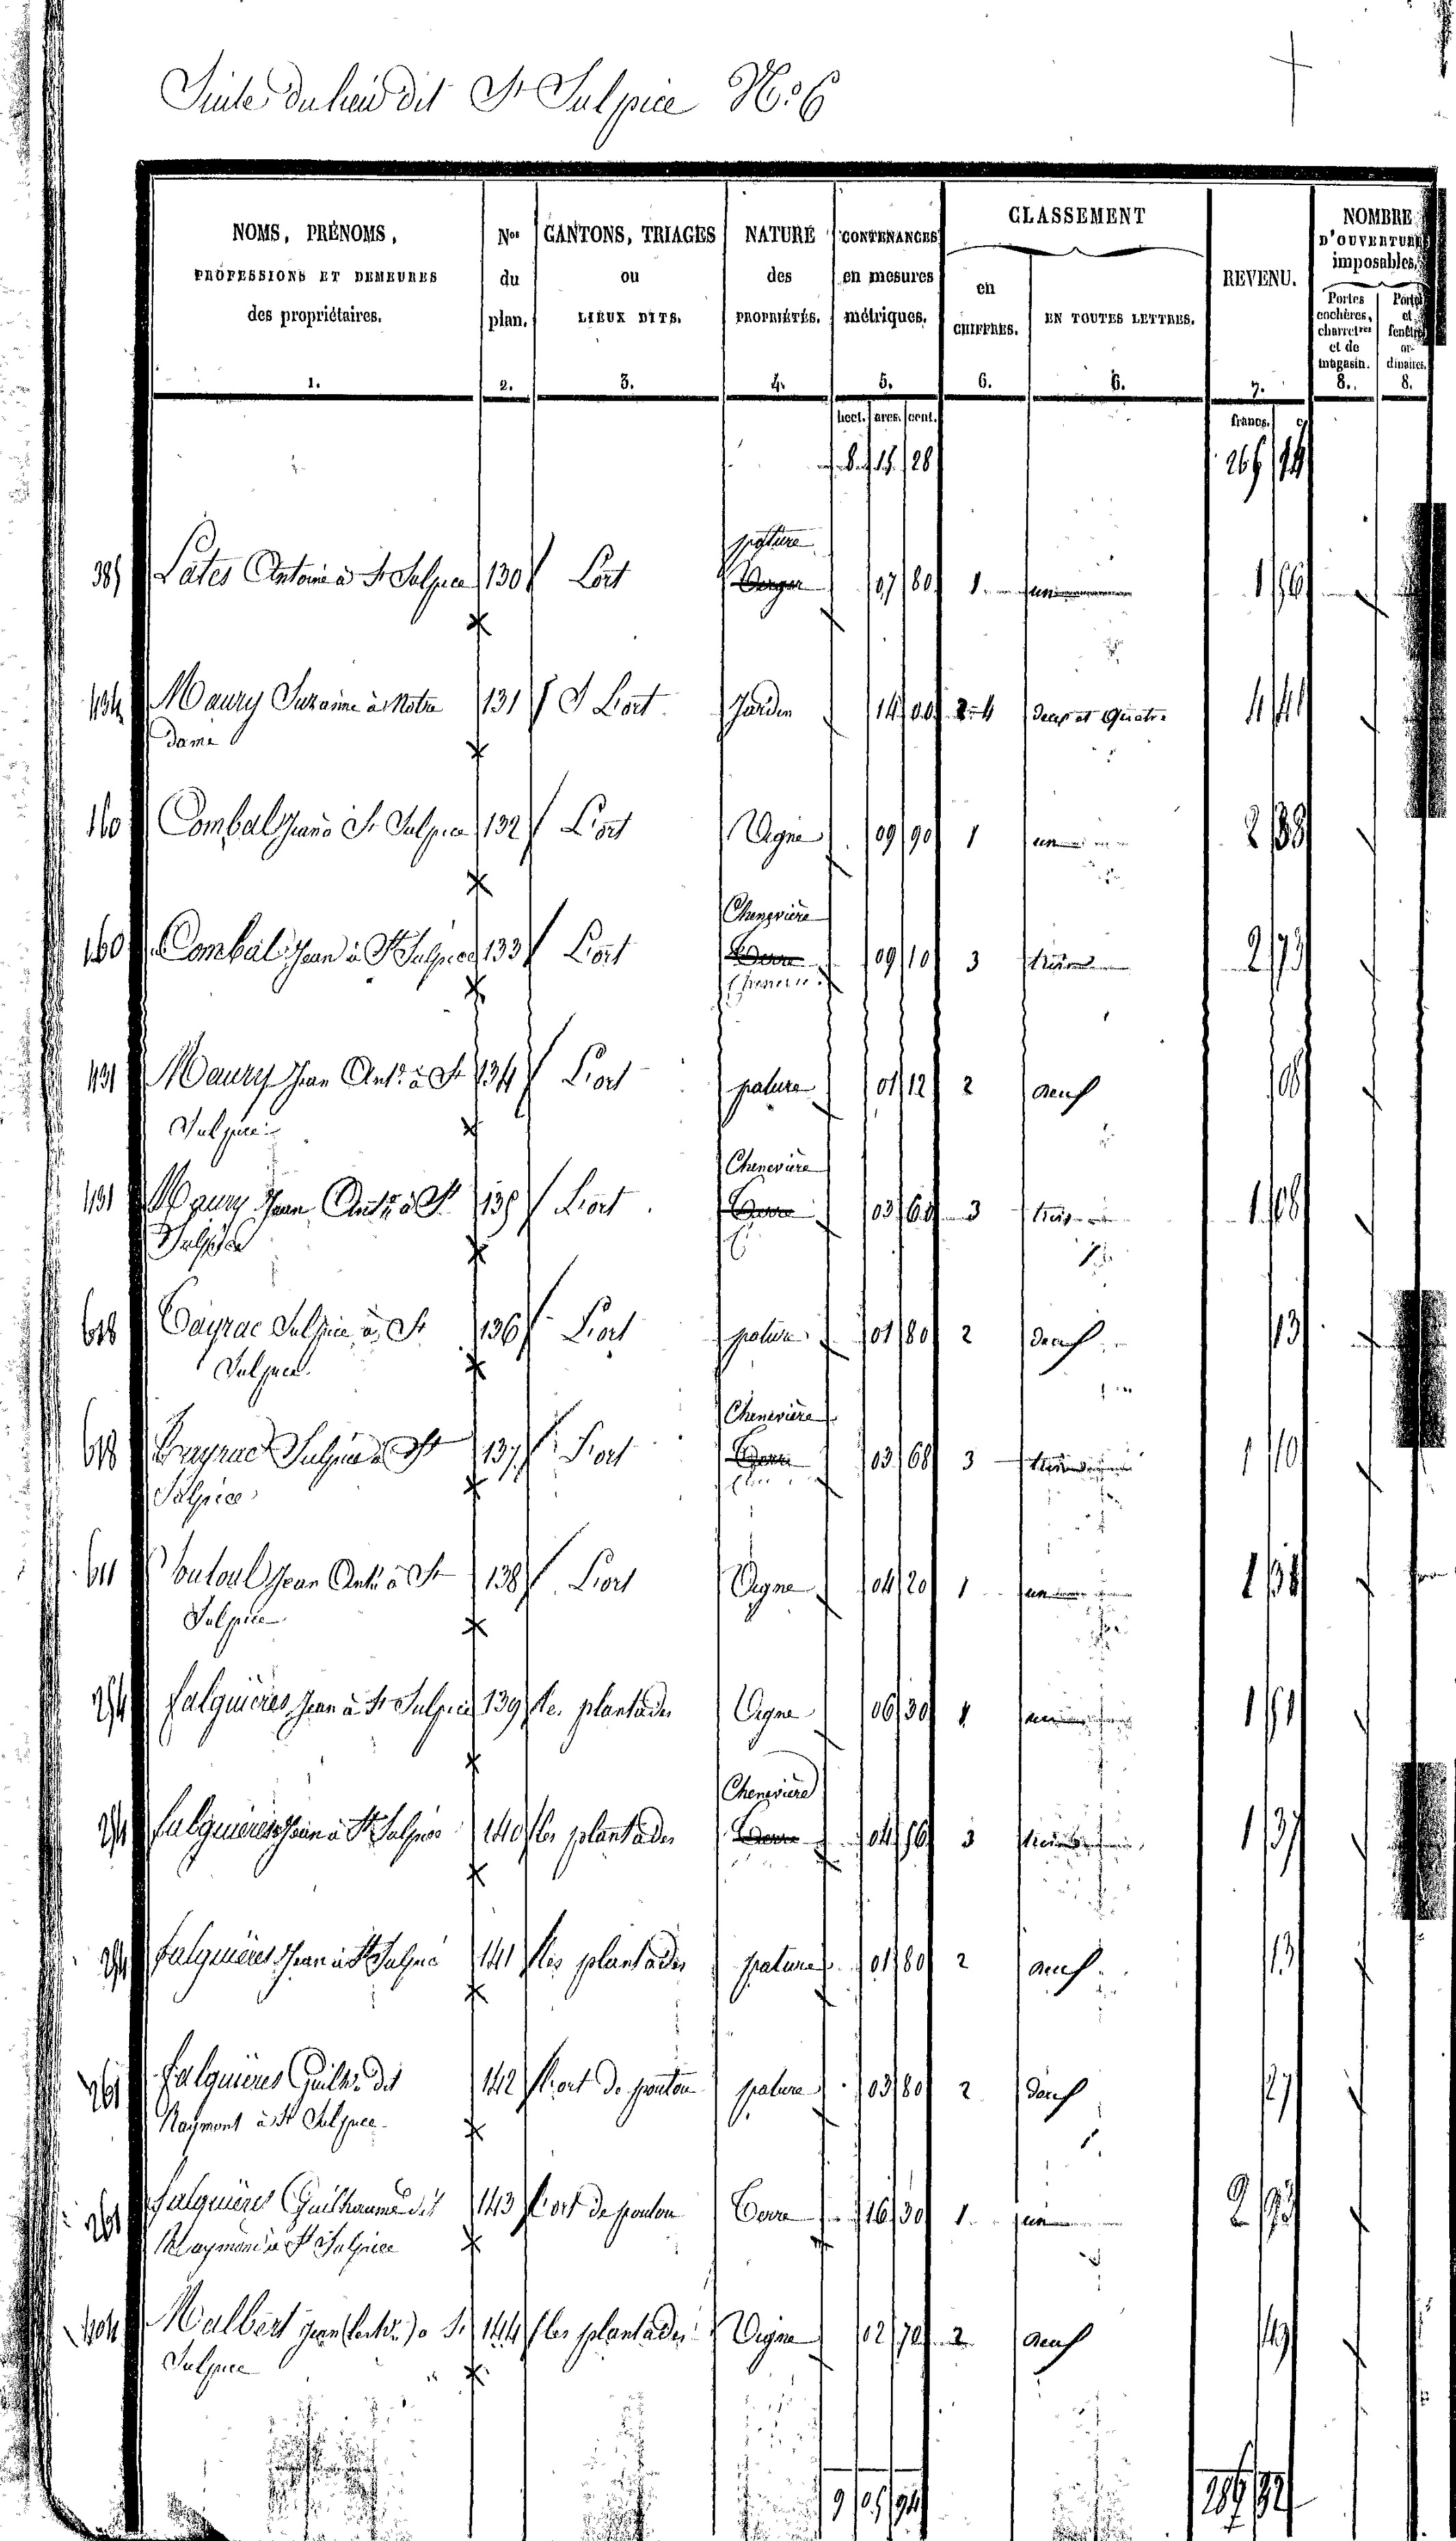 Suite du lieu dit St Sulpice N.º 6
NOMS, PRÉNOMS,
PROFESSIONS ET DEMEURES
des propriétaires.
1.
Nos
du
plan.
2.
CANTONS, TRIAGES
ou
LIEUX DITS.
3.
NATURE
des
PROPRIÉTÉS.
4.
CONTENANCES
en mesures
métriques.
5.
CLASSEMENT
en
CHIFFRES.
6.
EN TOUTES LETTRES.
6.
REVENU.
7.
NOMBRE
D'OUVERTURES
imposables.
Portes
cochères,
charretres
et de
magasin.
8.
Portes
et
fenêtres
or-
dinaires.
8.
hect. ares. cent. francs. c
8 15 28
pature
385 Lates Antoine à St Sulpice 130 Lort Verger 07 80 1 un 1 56
434 Maury Suzanne à Notre 131 Lort Jardin 14 00 2-4 deux et Quatre 4 41
dame
160 Combal Jean à St Sulpice 132 Lort Vigne 09 90 1 un 2 38
Chenevière
160 Combal Jean à St Sulpice 133 Lort Terre 09 10 3 trois 2 73
431 Maury Jean Ant.e à St 134 Lort pature 01 12 2 deux 08
Sulpice
Chenevière
431 Maury Jean Ant.e à St 135 Lort Terre 03 60 3 trois 1 08
Sulpice
618 Tayrac Sulpice à St 136 Lort pature 01 80 2 deux 13
Sulpice
Chenevière
618 Tayrac Sulpice à St 137 Lort Terre 03 68 3 trois 1 10
Sulpice
611 Jean Ant.e à St 138 Lort Vigne 04 20 1 un 1
Sulpice
254 falguières Jean à St Sulpice 139 les plantades Vigne 06 30 1 un 1 51
Chenevière
254 falguières Jean à St Sulpice 140 les plantades Terre 04 56 3 trois 1 37
254 falguières Jean à St Sulpice 141 les plantades pature 01 80 2 deux 13
261 falguières Guilh.e dit 142 Lort de ponton pature 03 80 2 deux 27
Raymont à St Sulpice
261 falguières Guilhaume dit 143 Lort de ponton Terre 16 30 1 un 2 93
Raymond à St Sulpice
404 Malbert Jean à St 144 les plantades Vigne 02 70 2 deux 49
Sulpice
9 05 94